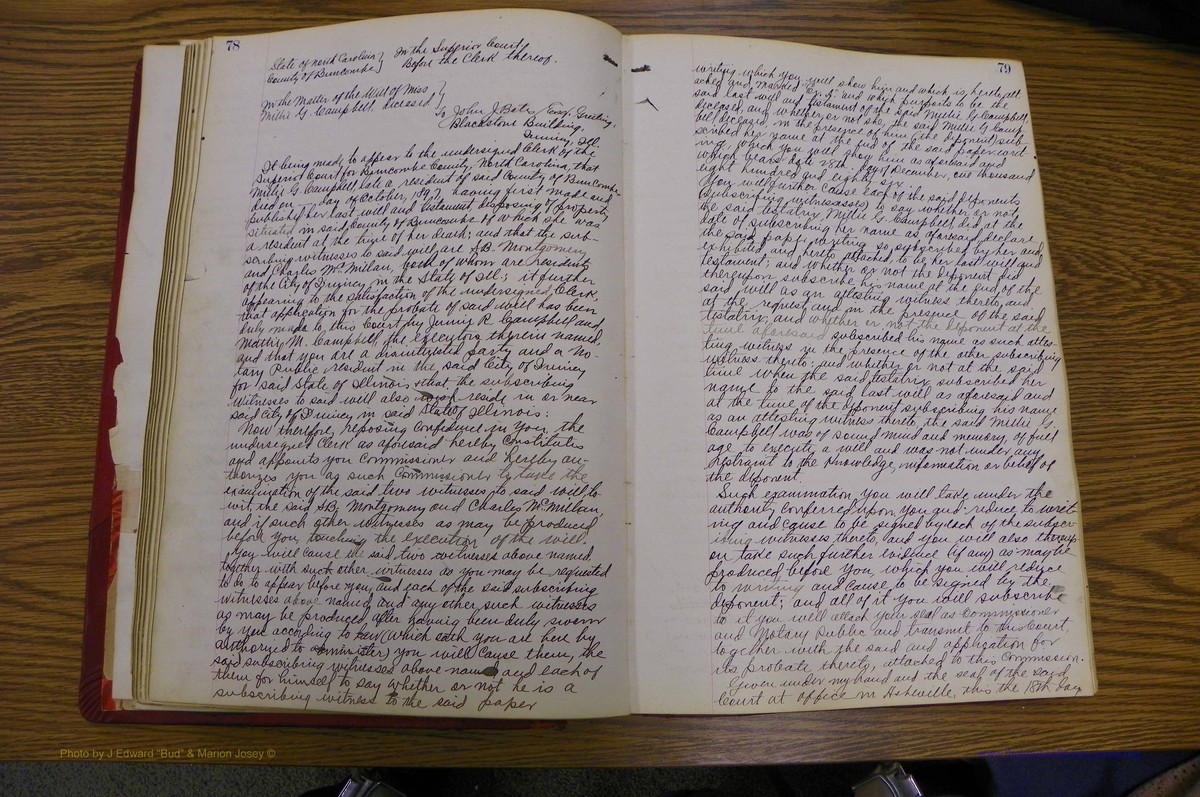 78
State of North Carolina } In the Superior Court
County of Buncombe } Before the Clerk thereof.
In the Matter of the Will of Miss }
Millie G. Campbell deceased }
To John J Esq. Greeting.
Blackstone Building,
Quincy, Ill.
It being made to appear to the undersigned Clerk of the
Superior Court for Buncombe County, North Carolina, that
Millie G. Campbell late a resident of said County of Buncombe
died on ___ day of October, 1897, having first made and
published her last will and testament disposing of property
situated in said County of Buncombe of which she was
a resident at the time of her death; and that the sub-
scribing witnesses to said will are S.B. Montgomery
and Charles McMilan, both of whom are residents
of the City of Quincy in the State of Ill.; it further
appearing to the satisfaction of the undersigned Clerk,
that application for the probate of said will has been
duly made to this Court by Jenny R. Campbell and
Mattie M. Campbell, the executors therein named,
and that you are a disinterested party and a No-
tary Public resident in the said City of Quincy
for said State of Illinois, & that the subscribing
witnesses to said will also reside in or near
said City of Quincy in said State of Illinois:
Now therefore, reposing confidence in you, the
undersigned Clerk as aforesaid hereby Constitutes
and appoints you Commissioner and hereby au-
thorizes you as such Commissioner to take the
examination of the said two witnesses to said will, to-
wit, the said S.B. Montgomery and Charles McMillan,
and if such other witnesses as may be produced
before you, touching the execution of the will.
You will cause the said two witnesses above named
together with such other witnesses as you may be requested
to do to appear before you, and each of the said subscribing
witnesses above named and any other such witnesses
as may be produced, after having been duly sworn
by you according to law (which oath you are here by
authorized to administer) you will cause them, the
said subscribing witnesses above named and each of
them for himself to say whether or not he is a
subscribing witness to the said paper
79
writing which you will show him and which is hereto att-
ached and marked and which purports to be the
said last will and testament of the said Millie G. Campbell
deceased, and whether or not she, the said Millie G. Camp-
bell deceased, in the presence of him (the deponent) sub-
scribed her name at the end of the said paper writ-
ing, which you will show him as aforesaid and
which bears date 28th day of December, one thousand
eight hundred and eighty six.
You will further cause each of the said deponents
(subscribing witnesses) to say whether or not
the said testatrix, Millie G. Campbell, did at the
date of subscribing her name as aforesaid, declare
the said paper writing so subscribed by her and
exhibited and hereto attached, to be her last will and
testament; and whether or not the deponent did
thereupon subscribe his name at the end of the
said will as an attesting witness thereto, and
at the request and in the presence of the said
testatrix; and whether or not the deponent at the
time aforesaid subscribed his name as such attes-
ting witness in the presence of the other subscribing
witness thereto; and whether or not at the said
time when the said testatrix subscribed her
name to the said last will as aforesaid and
at the time of the deponent subscribing his name
as an attesting witness thereto, the said Millie G.
Campbell was of sound mind and memory, of full
age to execute a will and was not under any
restraint to the knowledge, information or belief of
the deponent.
Such examination you will take under the
authority conferred upon you and reduce to writ-
ing and cause to be signed by each of the subscr-
ibing witnesses thereto, and you will also thereup-
on take such further evidence (if any) as may be
produced before you, which you will reduce
to writing and cause to be signed by the
deponent; and all of it you will subscribe
to it you will attach your seal as Commissioner
and Notary Public and transmit to this Court,
together with the said and application for
its probate thereto, attached to this Commission.
Given under my hand and the seal of the said
Court at office in Asheville, this the 18th day
Photo by J Edward "Bud" & Marion Josey ©